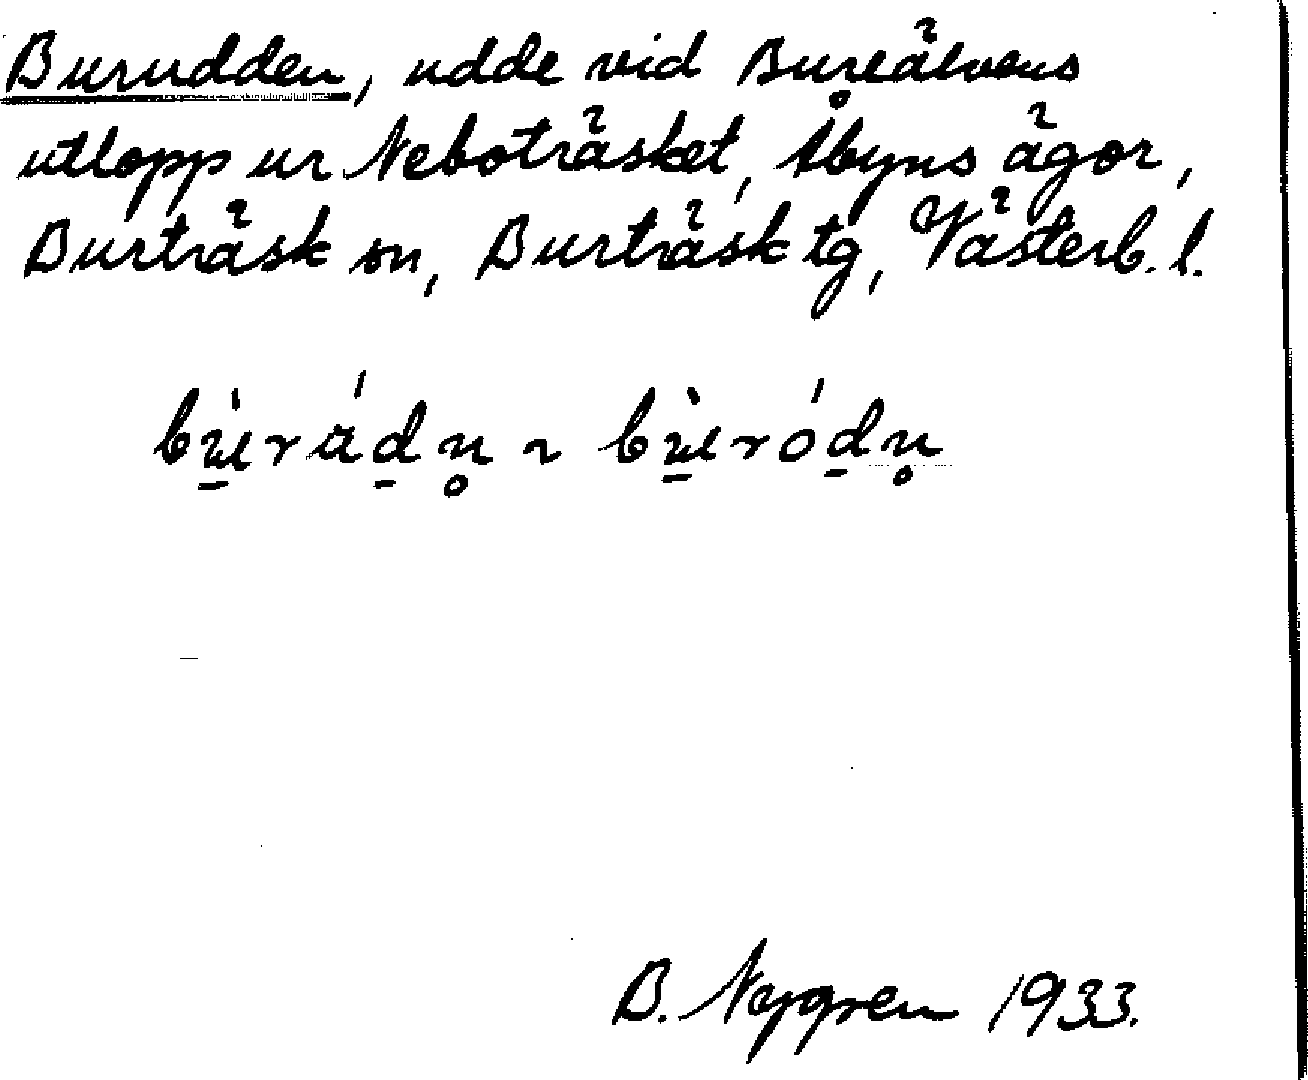 Burudden, udde vid Bureälvens
utlopp ur Neboträsket, Åbyns ägor,
Burträsk sn, Burträsk tg, Västerb. l.
B. Nygren 1933.